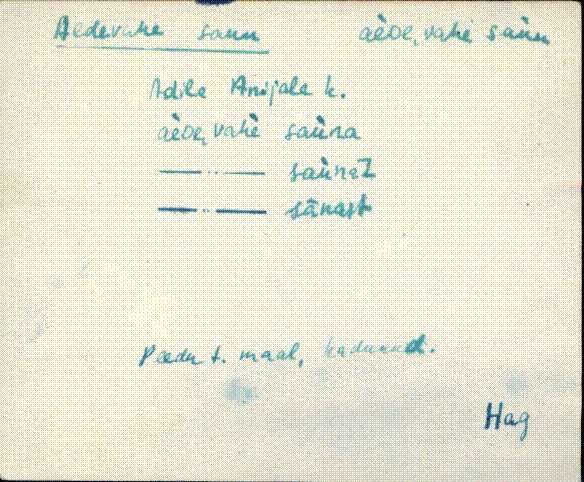 Aedevahe saun aède͕vahè sàun
Adila Anijala k.
aède͕vahè saùna
—— ·· —— saùnaZ
—— ·· —— sânast
Paedu t. maal, kadunud.
Hag